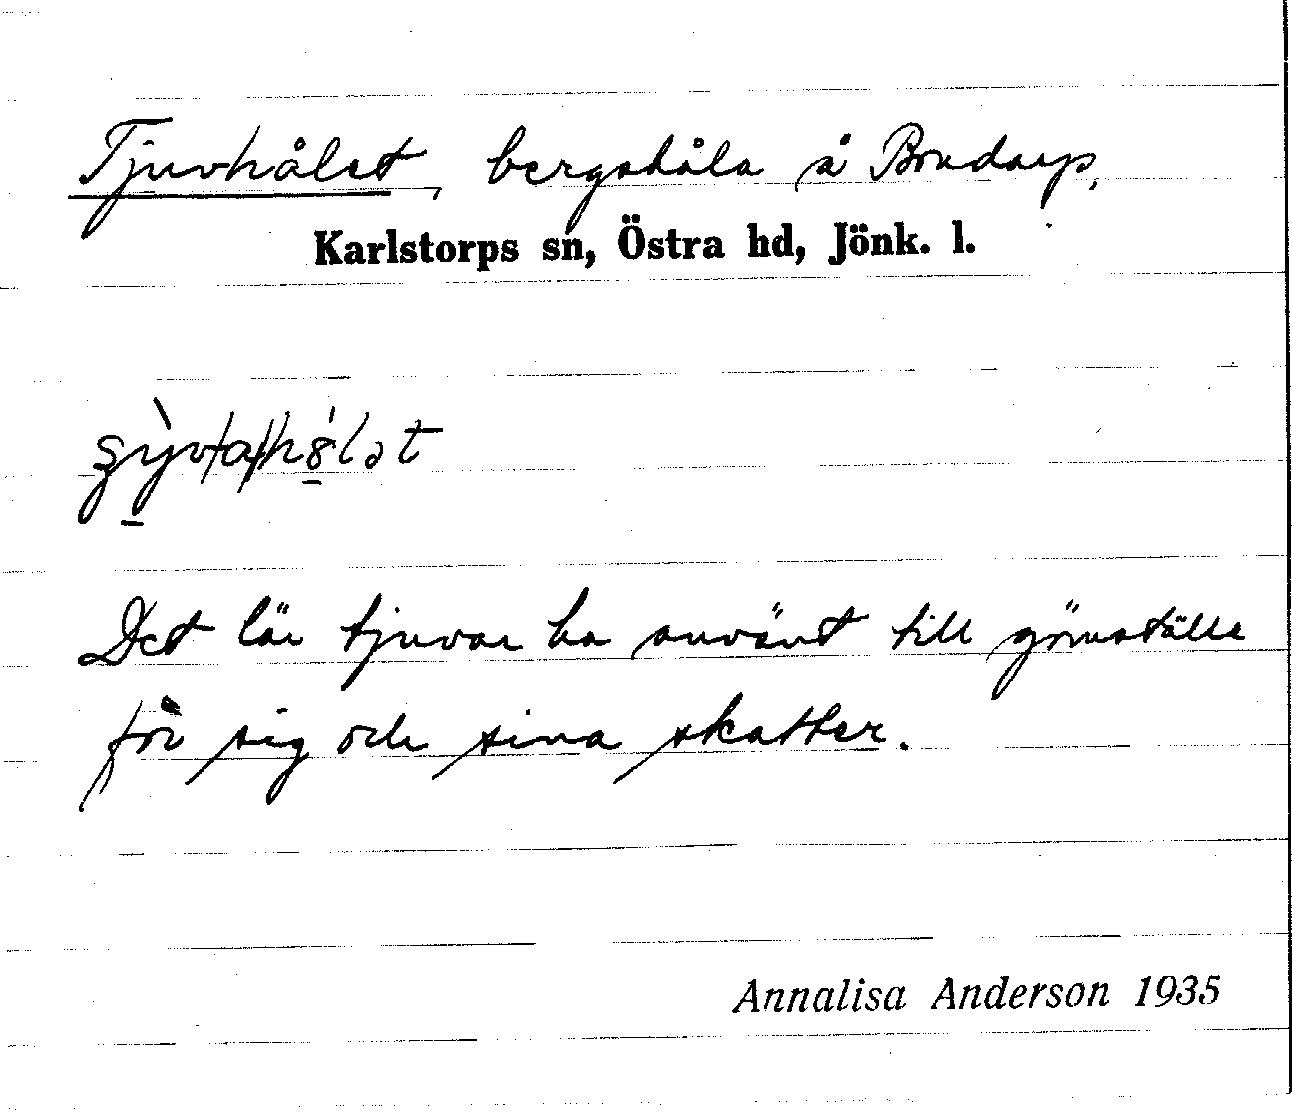 Tjuvhålet, bergshåla å Bondarp,
Karlstorps sn, Östra hd, Jönk. l.
Det lär tjuvar ha använt till gömställe
för sig och sina skatter.
Annalisa Anderson 1935